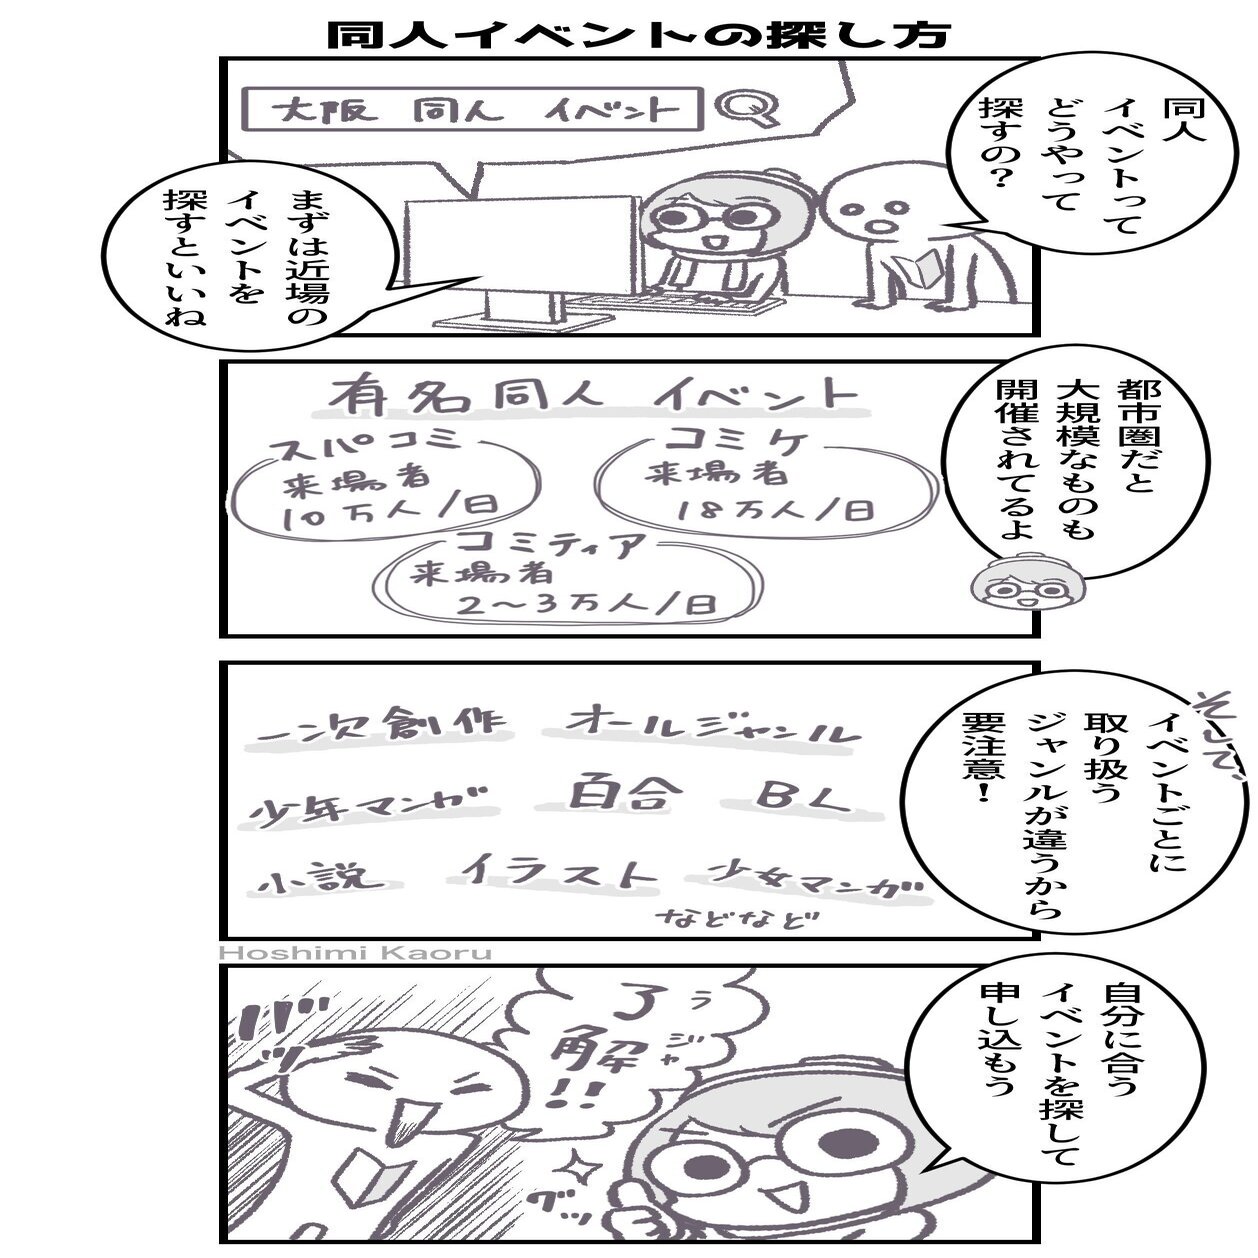 同人イベントの探し方
同人
イベントって
どうやって
探すの？
大阪 同人 イベント
まずは近場の
イベントを
探すといいね
都市圏だと
大規模なものも
開催されてるよ
有名同人イベント
スパコミ
来場者
10万人/日
コミケ
来場者
18万人/日
コミティア
来場者
2～3万人/日
そして、
イベントごとに
取り扱う
ジャンルが違うから
要注意！
一次創作 オールジャンル
少年マンガ 百合 BL
小説 イラスト 少女マンガ
などなど
Hoshimi Kaoru
自分に合う
イベントを探して
申し込もう
了解!!
ラジャ
グッ